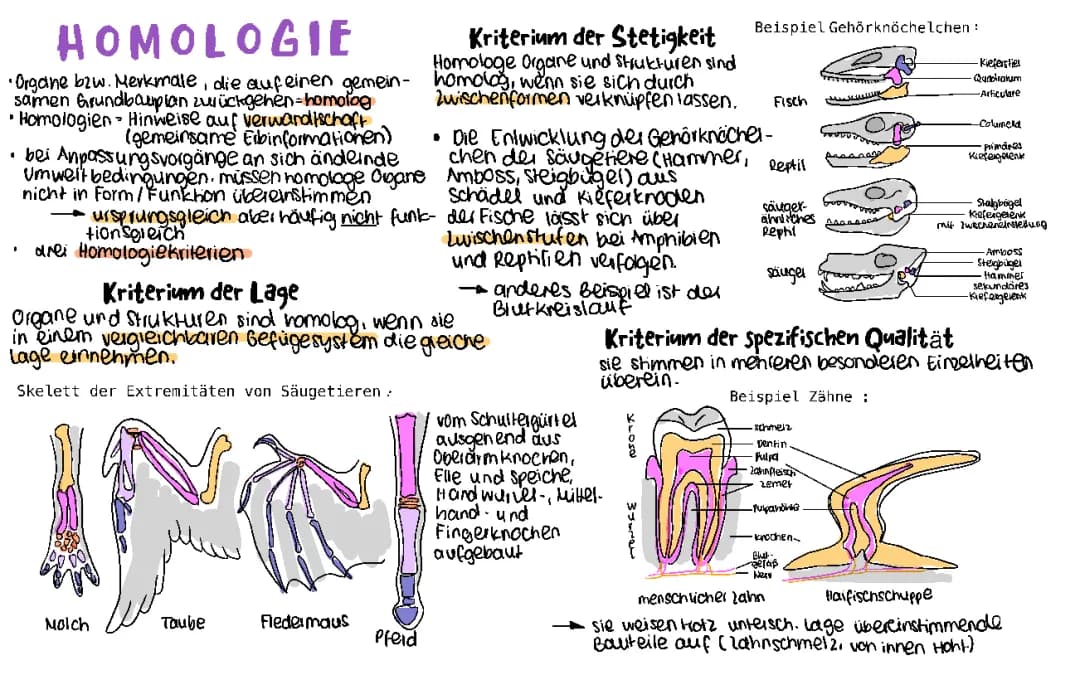 HOMOLOGIE
• Organe bzw. Merkmale, die auf einen gemein-
samen Grundbauplan zurückgehen=homolog
• Homologien = Hinweise auf verwandtschaft
(gemeinsame Erbinformationen)
• bei Anpassungsvorgänge an sich ändernde
Umweltbedingungen. müssen homologe Organe
nicht in Form/Funktion übereinstimmen
→ ursprungsgleich aber häufig nicht funk-
tionsgleich
• drei Homologiekriterien
Kriterium der Lage
Organe und Strukturen sind homolog, wenn sie
in einem vergleichbaren Gefügesystem die gleiche
Lage einnehmen.
Skelett der Extremitäten von Säugetieren:
Molch
Taube
Fledermaus
Pferd
vom Schultergürtel
ausgehend aus
Oberarmknochen,
Elle und Speiche,
Handwurzel-, Mittel-
hand- und
Fingerknochen
aufgebaut
Kriterium der Stetigkeit
Homologe Organe und Strukturen sind
homolog, wenn sie sich durch
Zwischenformen verknüpfen lassen.
• Die Entwicklung der Gehörknöchel-
chen der Säugetiere (Hammer,
Amboss, Steigbügel) aus
Schädel und Kieferknochen
der Fische lässt sich über
Zwischenstufen bei Amphibien
und Reptilien verfolgen.
→ anderes Beispiel ist der
Blutkreislauf
Beispiel Gehörknöchelchen:
Fisch
Kieferstiel
Quadratum
Articulare
Reptil
Columella
primäres
Kiefergelenk
säuger-
ähnliches
Reptil
Steigbügel
Kiefergelenk
mit Zwischenstellung
säuger
Amboss
Steigbügel
Hammer
sekundäres
Kiefergelenk
Kriterium der spezifischen Qualität
sie stimmen in mehreren besonderen Einzelheiten
überein.
Beispiel Zähne :
Krone
Wurzel
schmelz
Dentin
Pulpa
Zahnfleisch
Zement
Pulpahöhle
knochen
Blut-
gefäß
Nerv
menschlicher Zahn
Haifischschuppe
→ sie weisen trotz untersch. Lage übereinstimmende
Bauteile auf (Zahnschmelz, von innen Hohl)